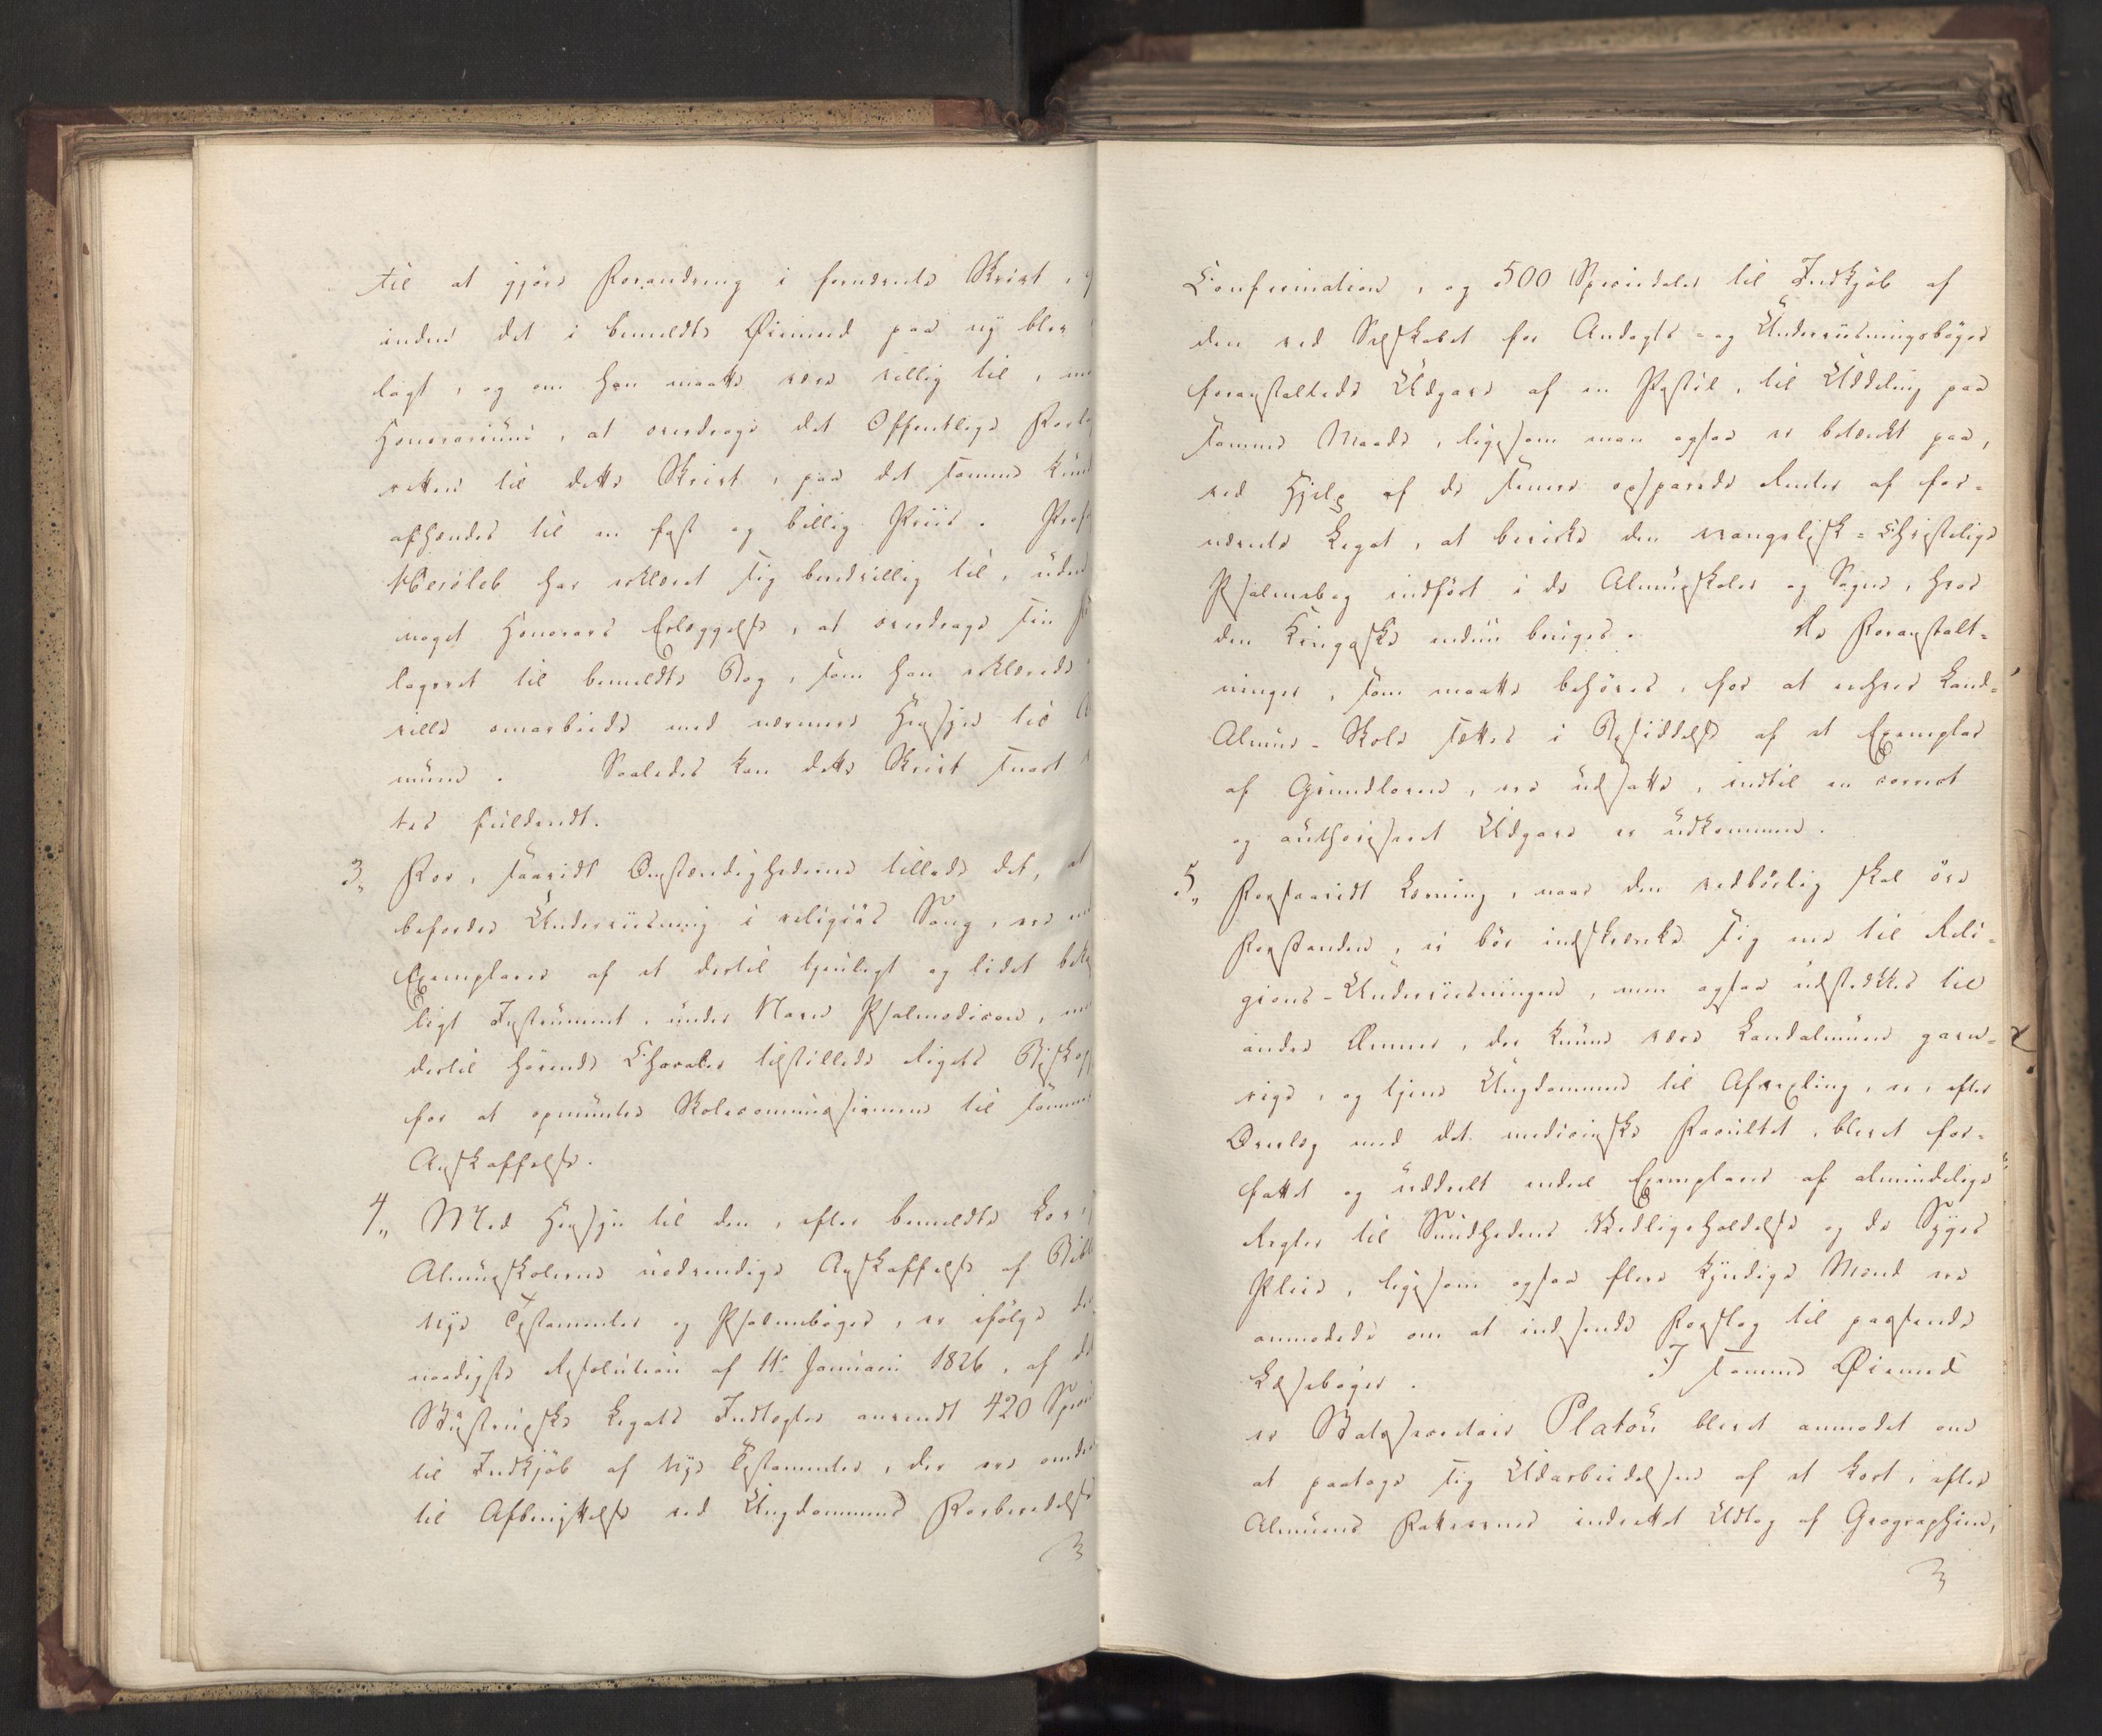 til at gjöre Forandring i fornevnte Skrivt,
inden det i bemeldte Øiemed paa ny blev
lagt, og om han maatte være villig til, 
Honorarium, at overdrage det Offentlige Forla
retten til dette Skrivt, paa det samme kun
afhændes til en fast og billig Priis. Prof
Hersleb har erklæret sig beredvillig til, uden
noget Honorars Erlæggelse, at overdrage sin
lagsret til bemeldte Bog, som han erklærede
ville omarbeide med nærmere Hensyn til A
muen. Saaledes kan dette Skrivt snart
tes fuldendt.
3, For, saavidt Omstændighederne tillade det, at
befordre Underviisning i religiös Sang, ere
Exemplarer af et dertil tjenligt og lidet beko
ligt Instrument, under Navn Psalmodicon, 
dertil hörende Choraler tilstillede Rigets Biskopp
for at opmuntre Skolecommissionerne til sammes
Anskaffelse.
4, Med Hensyn til den, efter bemeldte Lov i
Almueskolerne nödvendige Anskaffelse af Bibl
Nye Testamenter og Psalmebøger, er ifölge
naadigste Resolution af 11te Januari 1826, af
Legats Indtægter anvendt 420 Speci
til Indkjöb af Nye Testamenter, der ere
til Afbenyttelse ved Ungdommens Forberedelse
Confirmation, og 500 Speciedaler til Indkjöb af
den ved Selskabet for Andagts- og Underviisningsböger
foranstaltede Udgave af en Postil, til Uddeling paa
samme Maade, ligesom man ogsaa er betænkt paa,
ved Hjelp af de senere opsparede Renter af for-
nevnte Legat, at bevirke den evangelisk-christelige
Psalmebog indfört i de Almueskoler og Sogne, hvor
den Kingoske endnu bruges. De Foranstalt-
ninger, som maatte behöves, for at enhver Land-
Almue-Skole sættes i Besiddelse af et Exemplar
af Grundloven, ere udsatte, indtil en correct
og authoriseret Udgave er udkommen.
5, Forsaavidt Læsning, naar den vedbörlig skal öve
Forstanden, ei bör indskrænke sig ene til Reli-
gions-Underviisningen, men ogsaa udstrækkes til
andre Emner, der kunne være Landalmuen gavn-
lige, og tjene Ungdommen til Afvexling, er, efter
Overlæg med det medicinske Facultet, blevet for-
fattet og uddeelt endeel Exemplarer af almindelige
Regler til Sundhedens Vedligeholdelse og de Syges
Pleie, ligesom ogsaa flere kyndige Mænd ere
anmodede om at indsende Forslag til passende
Læseböger. I samme Øiemed
er Statssecretair Platöu blevet anmodet om
at paatage sig Udarbeidelsen af et kort, efter
Almuens Fatteevne indrettet Udtog af Geographien,